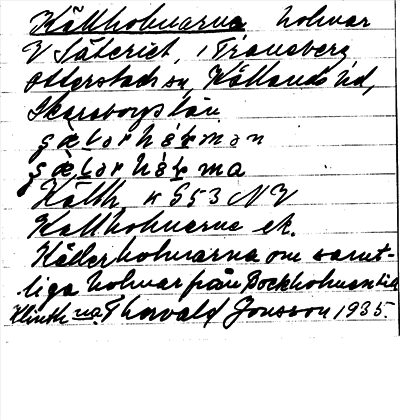 Källholmarna holmar
V Säteriet, i Traneberg
Otterstads sn, Kållands hd,
Skaraborgs län
Källh. K 553 NV
Kallholmarne ek.
Källerholmarna om samt-
liga holmar från Bockholmen till
Klinth na. Thorvald Jonsson 1935.